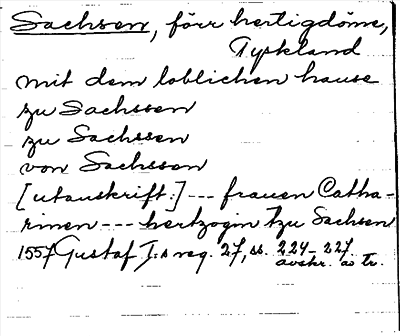 Sachsen, förr hertigdöme,
Tyskland
mit dem loblichen hause
zu Sachssen
zu Sachssen
von Sachsson
[utanskrift:] --- frauen Catha-
rinen --- hertzogin tzu Sachsen
1557 Gustaf I:s reg. 27, ss. 224-227.
avskr. av Tr.